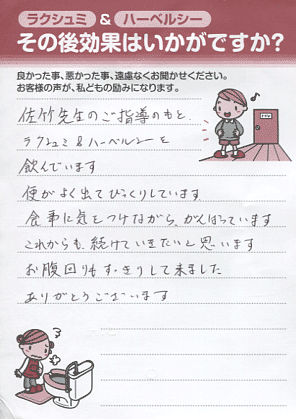 ラクシュミ & ハーベルシー
その後効果はいかがですか?
良かった事、悪かった事、遠慮なくお聞かせください。
お客様の声が、私どもの励みになります。
佐竹先生のご指導のもと、
ラクシュミ&ハーベルシーを
飲んでいます
便がよく出てびっくりしています
食事に気をつけながら、がんばっています
これからも、続けていきたいと思います
お腹回りもすっきりして来ました
ありがとうございます